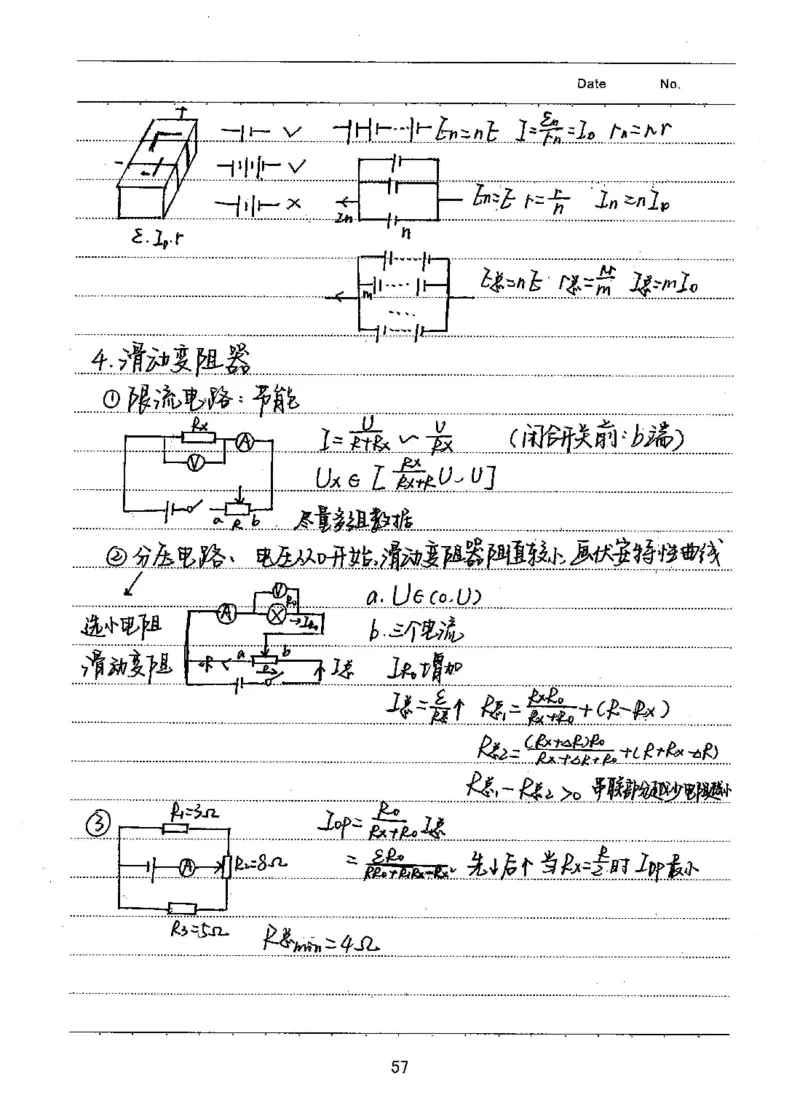 Date No.
√ En=nE I=εn/rn=I₀ rn=nr
√
× In n En=E r=r/n In=nI₀
ε.I₀.r
m E总=nE r总=nr/m I总=mI₀
4.滑动变阻器
①限流电路：节能
Rx A V a R b I=U/(R+Rx) ~ U/Rx (闭合开关前：b端)
Ux∈[Rx/(Rx+R)U、U]
尽量多组数据
②分压电路、电压从0开始,滑动变阻器阻值较小、画伏安特性曲线
选小电阻
滑动变阻
A V R₀ I_R₀ a b R I总
a. U∈(0.U)
b.三个电流
I_R₀增加
I总=ε/R总↑ R总₁=RxR₀/(Rx+R₀)+(R-Rx)
R总2=(Rx+ΔR)R₀/(Rx+ΔR+R₀)+(R+Rx-ΔR)
R总₁-R总2>0
③ R₁=3Ω R₂=8Ω A R₃=5Ω
I_OP=R₀/(Rx+R₀)I总
先↓后↑当Rx=R/2时I_OP最小
R总min=4Ω
57